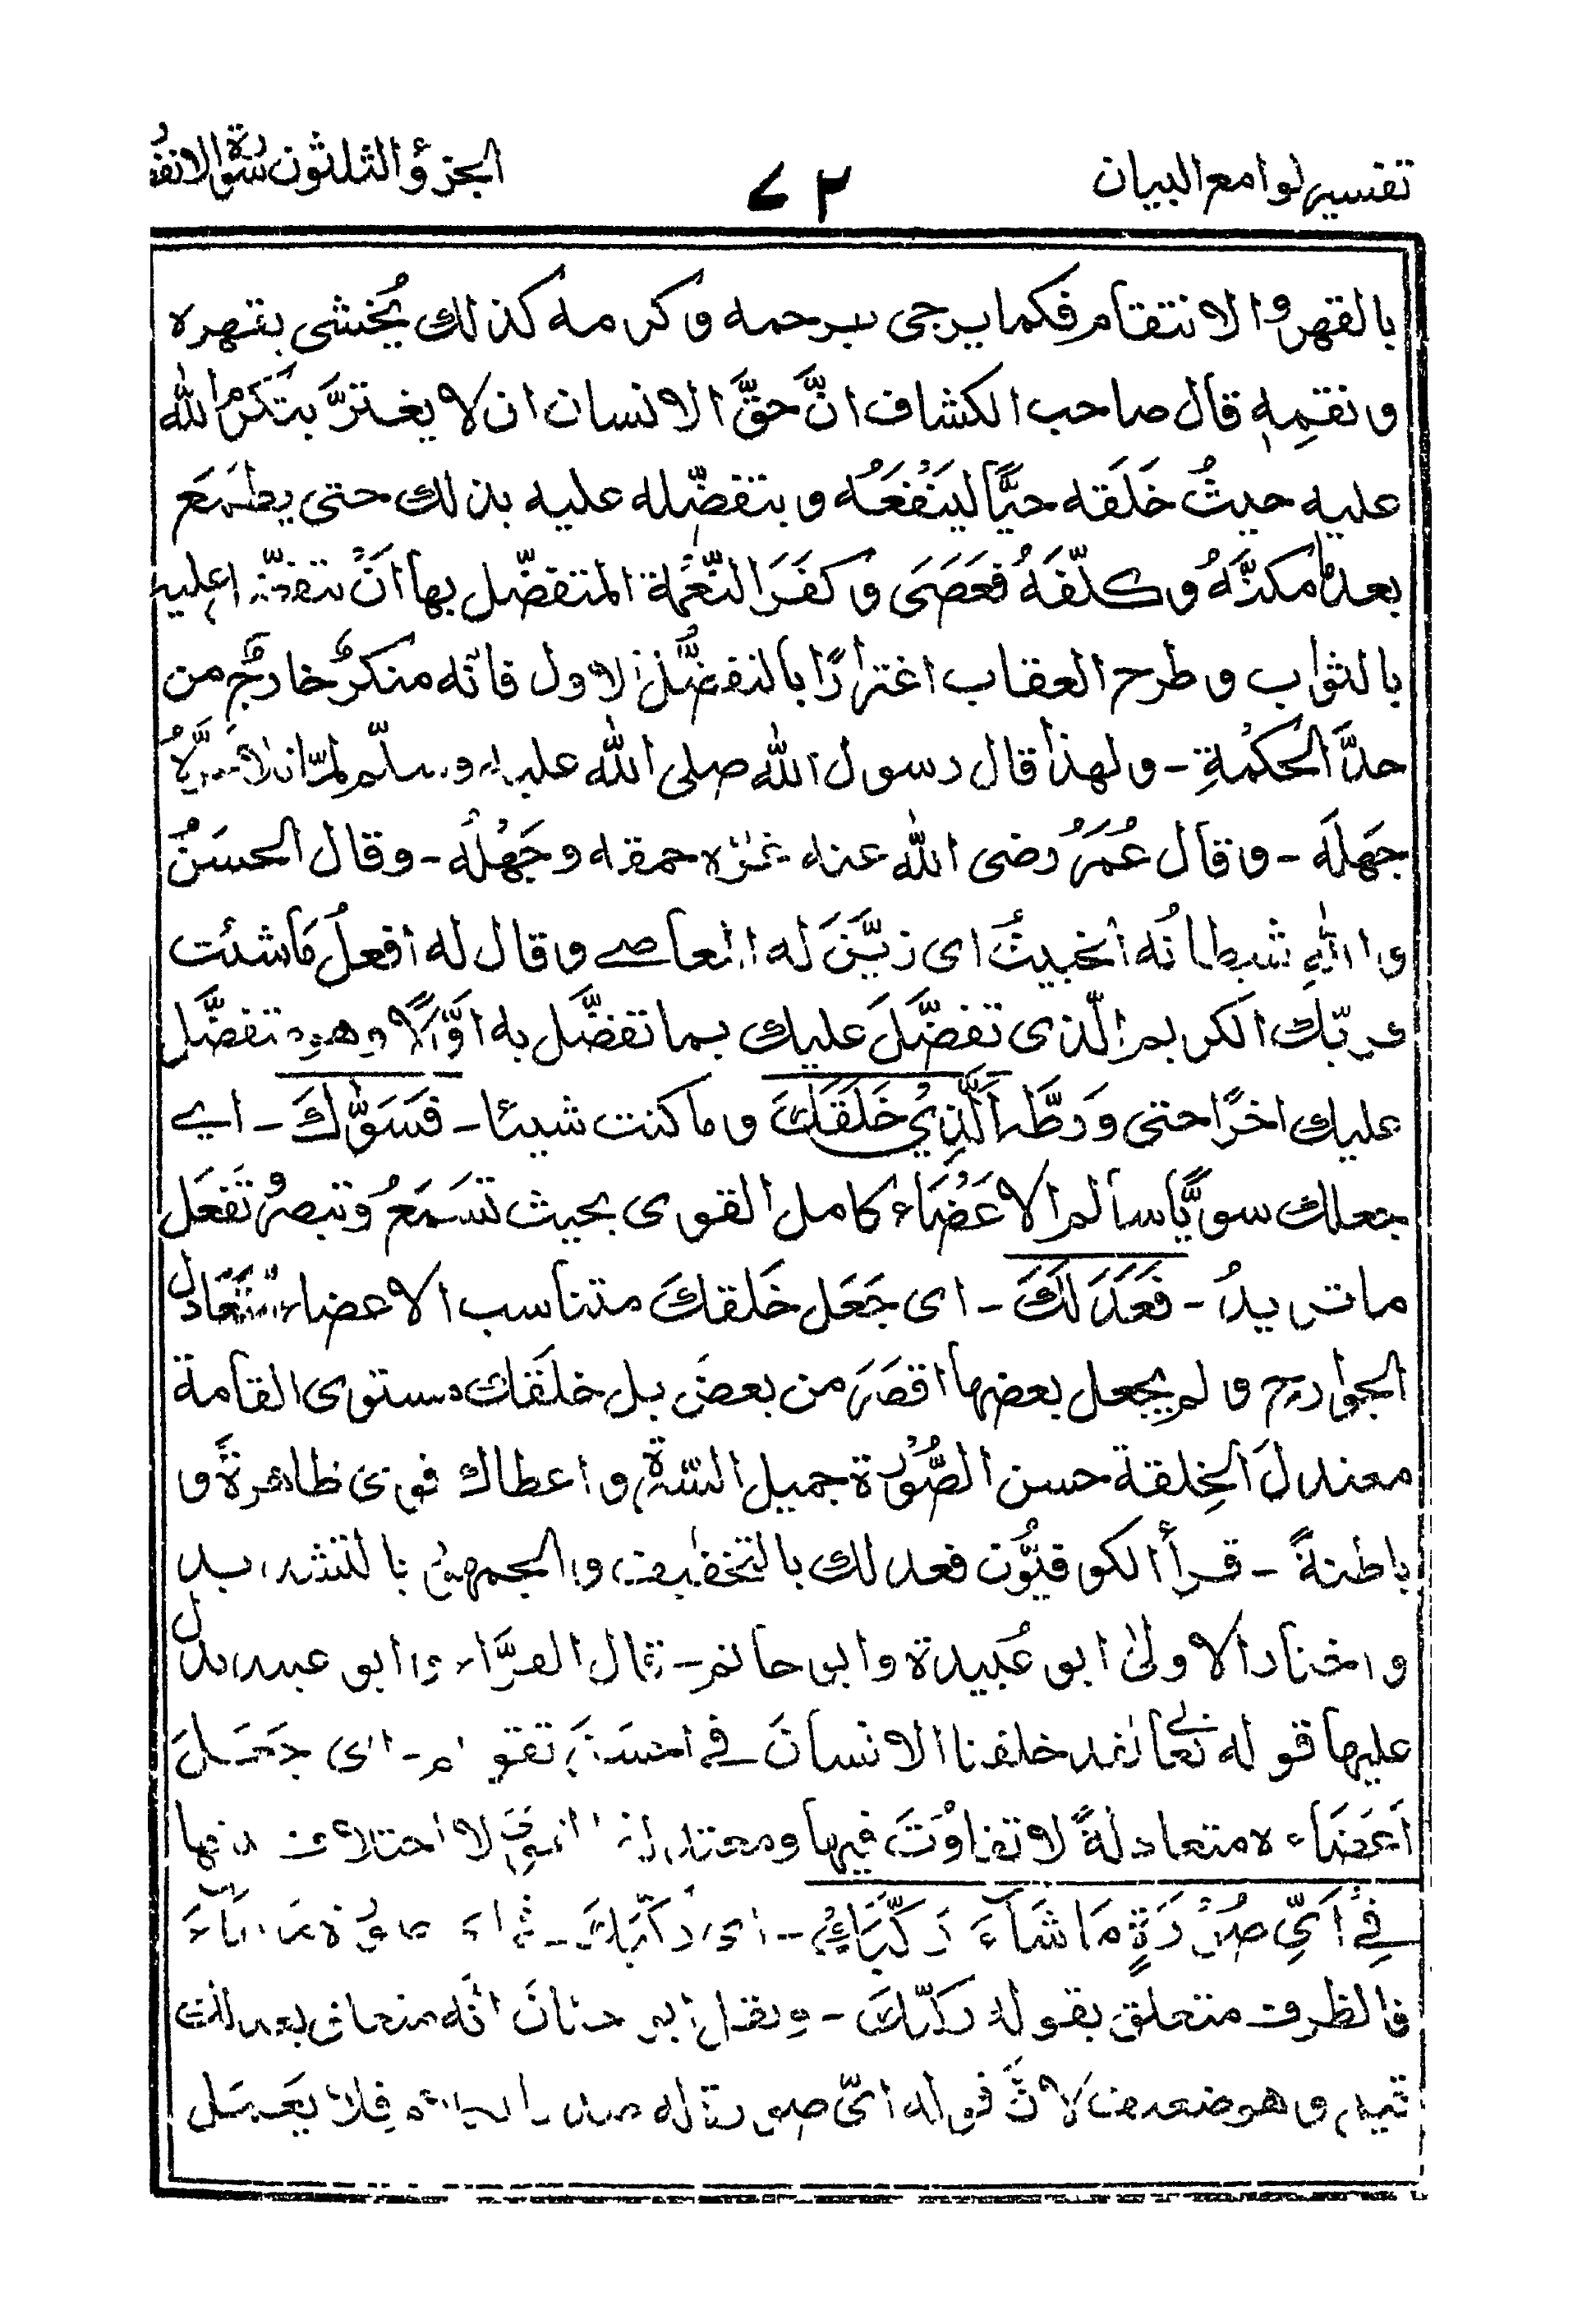 تفسير لوامع البيان
٧٢
الجزؤ الثلثون سورة الانفط
بالقهر والانتقام فكما يرجى ببرحمه وكرمه كذلك يُخشى بقهره
ونقمِه قال صاحب الكشاف انَّ حقَّ الانسان ان لا يغترَّ بتَكرم الله
عليه حيثُ خَلَقه حيًّا لينْفعَه وبتفضّله عليه بذلك حتى يطمَع
بعد ما مكنَّهُ وكلّفَهُ فعَصَى وكفَرَ النّعْمة المتفضّل بها انْ يتفضّل عليه
بالثواب وطرح العقاب اغترارًا بالتفضُّل الاول فانّه منكرٌ خارجٌ من
حدَّ الحكْمةِ - ولهذا قال رسول الله صلى الله عليه وسلّم لمّا تلا غَرَّهُ
جَهلَه - وقال عُمَرُ رضى الله عنه غرّه حمقه وجَهْلُه - وقال الحسَنُ
والله شيطانُه الخبيثُ اى زيَّنَ له المعاصے وقال له افعلْ مَا شئت
فربّك الكريم الّذى تفضَّلَ عليك بما تفضَّل به اوَّلًا وهو يتفضَّل
عليك اخرًا حتى وَرطَّه الَّذِيْ خَلَقَكَ وما كنت شيئا - فَسَوّٰىكَ - اے
جعلك سويًّا سالم الاعَضَاء كامل القوى بحيث تَسَمَعُ وتبصرُ تَفعَل
ما تريدُ - فَعَدَلَكَ - اى جَعَل خَلقكَ متناسب الاعضاء متَعَادل
الجوارح ولم يجعل بعضها اقصَرَ من بعضَ بل خلَقَك مستوى القامة
معتدلَ الخِلقة حسن الصُّوْرة جميل السّيرة واعطاك قوى ظاهرةً و
باطنةً - قرأ الكوفيُّون فعدلك بالتخفيف والجمهور بالتشديد
واختار الاولىٰ ابو عُبيدة وابو حاتم - قال الفرَّاء وابو عبيد يدل
عليها قوله تعالٰے لقد خلقنا الانسانَ فے احسَنِ تقويم - اى جَعَلَ
اَعضَاءه متعادلةً لا تفاوُتَ فيها ومعتدلة لا اختلاف فيها
فِيْٓ اَيِّ صُوْرَةٍ مَا شَآءَ رَكَّبَكَ - اى ركّبَكَ فى اى صورة ما شاءَ
فالظرف متعلق بقوله ركّبك - ونقل ابو حيّانَ انّه متعلق بعدلك
وهو ضعيف لانَّ قوله اىّ صورة له صدر الكلام فلا يعَمل